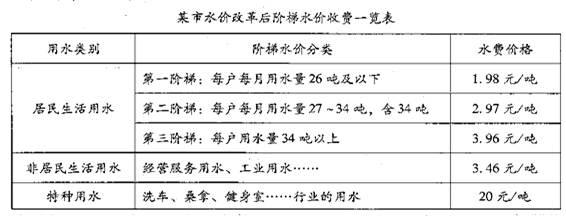 某市水价改革后阶梯水价收费一览表
用水类别 阶梯水价分类 水费价格
居民生活用水 第一阶梯：每户每月用水量26吨及以下 1.98元/吨
第二阶梯：每户每月用水量27~34吨，含34吨 2.97元/吨
第三阶梯：每户用水量34吨以上 3.96元/吨
非居民生活用水 经营服务用水、工业用水…… 3.46元/吨
特种用水 洗车、桑拿、健身室……行业的用水 20元/吨